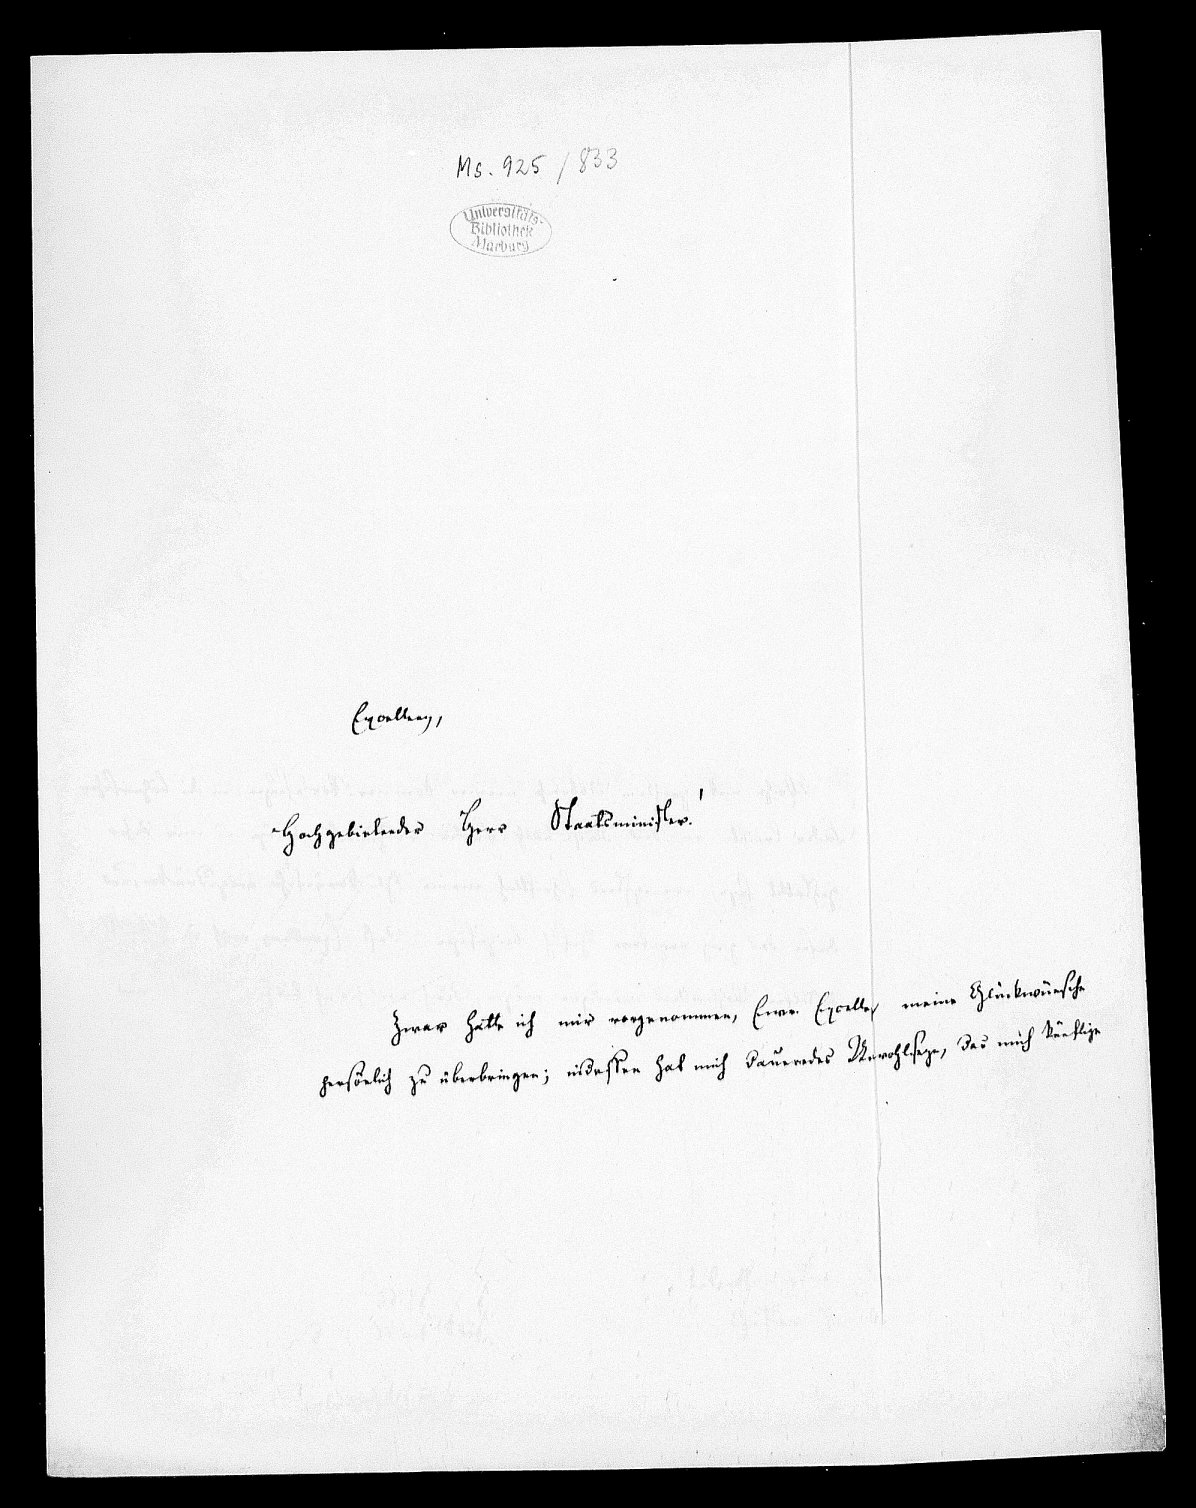 Ms. 925 / 833
Universitäts-
Bibliothek
Marburg
Excellenz,
Hochgebietender Herr Staatsminister!
Zwar hatte ich mir vorgenommen, Ewr. Excellez meine Glückwünsche
persönlich zu überbringen; indessen hat mich dauerndes Unwohlseyn, das mich